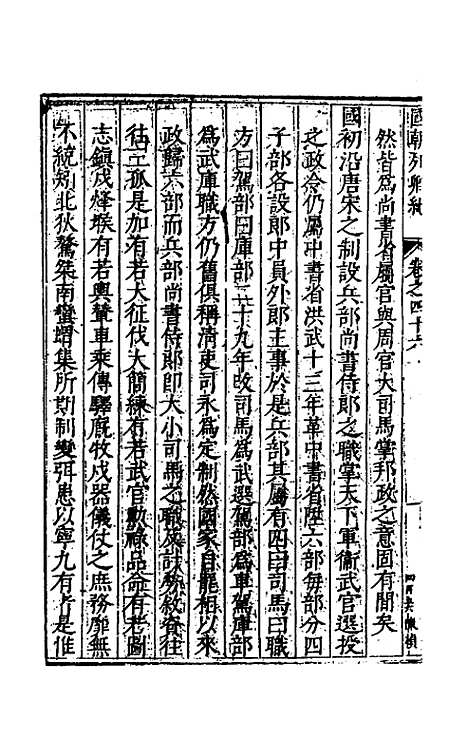 國朝列卿紀
卷之四十六
然皆為尚書省屬官與周官大司馬掌邦政之意固有間矣
國初沿唐宋之制設兵部尚書侍郎之職掌天下軍衞武官選授
之政令仍屬中書省洪武十三年革中書省陞六部每部分四
子部各設郎中員外郎主事於是兵部其屬有四曰司馬曰職
方曰駕部曰庫部二十九年改司馬為武選駕部為車駕庫部
為武庫職方仍舊俱稱清吏司永為定制然國家自龍飛以來
政歸六部而兵部尚書侍郎即大小司馬之職及計務敘資往
往三孤是加有若大征伐大簡練有若武官勳祿品命有若圖
志鎮戍烽堠有若輿輦車乘傳驛廐牧戍器儀仗之庶務靡無
不統矧北狄驁桀南蠻蝟集所期制變弭患以寧九有者是惟